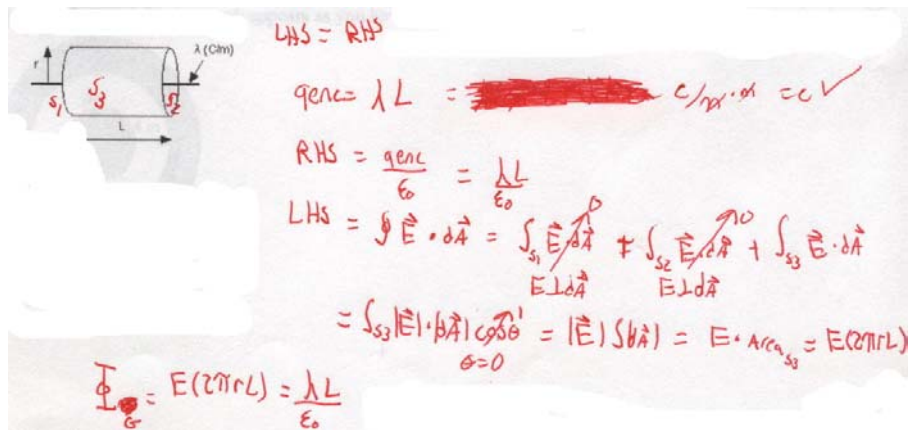 LHS = RHS
r
λ (C/m)
S1
S3
S2
L
qenc = λL = C/m · m = C ✓
RHS = qenc/ε0 = λL/ε0
LHS = ∮ E⃗ · dA⃗ = ∫S1 E⃗ · dA⃗ 0 + ∫S2 E⃗ · dA⃗ 0 + ∫S3 E⃗ · dA⃗
E ⊥ dA⃗ E ⊥ dA⃗
= ∫S3 |E⃗| · |dA⃗| cos θ 1 = |E⃗| ∫ |dA⃗| = E · AreaS3 = E(2πrL)
θ = 0
ΦG = E(2πrL) = λL/ε0